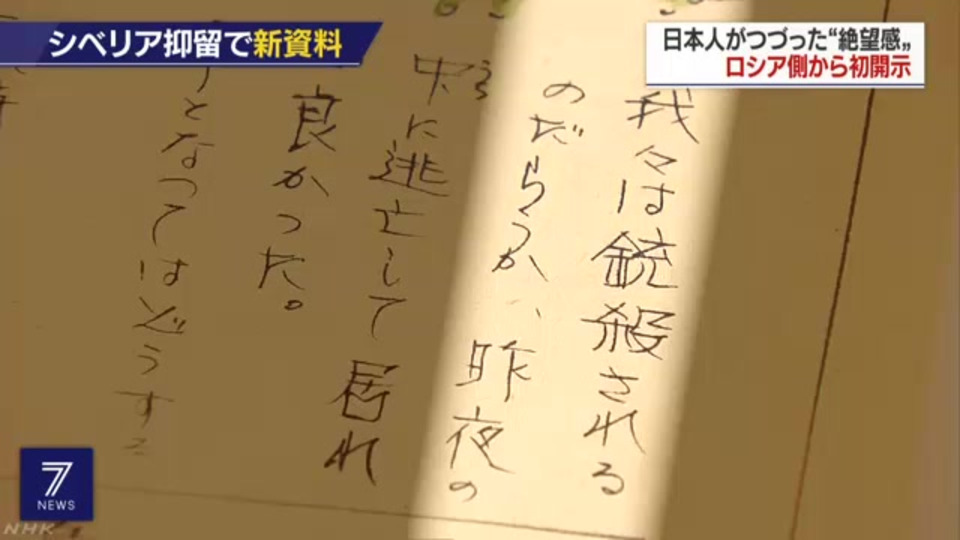 シベリア抑留で新資料
日本人がつづった“絶望感„
ロシア側から初開示
我々は銃殺される
のだらうか、昨夜の
中に逃亡して居れ
良かった。
となつてはどうする
7
NEWS
NHK